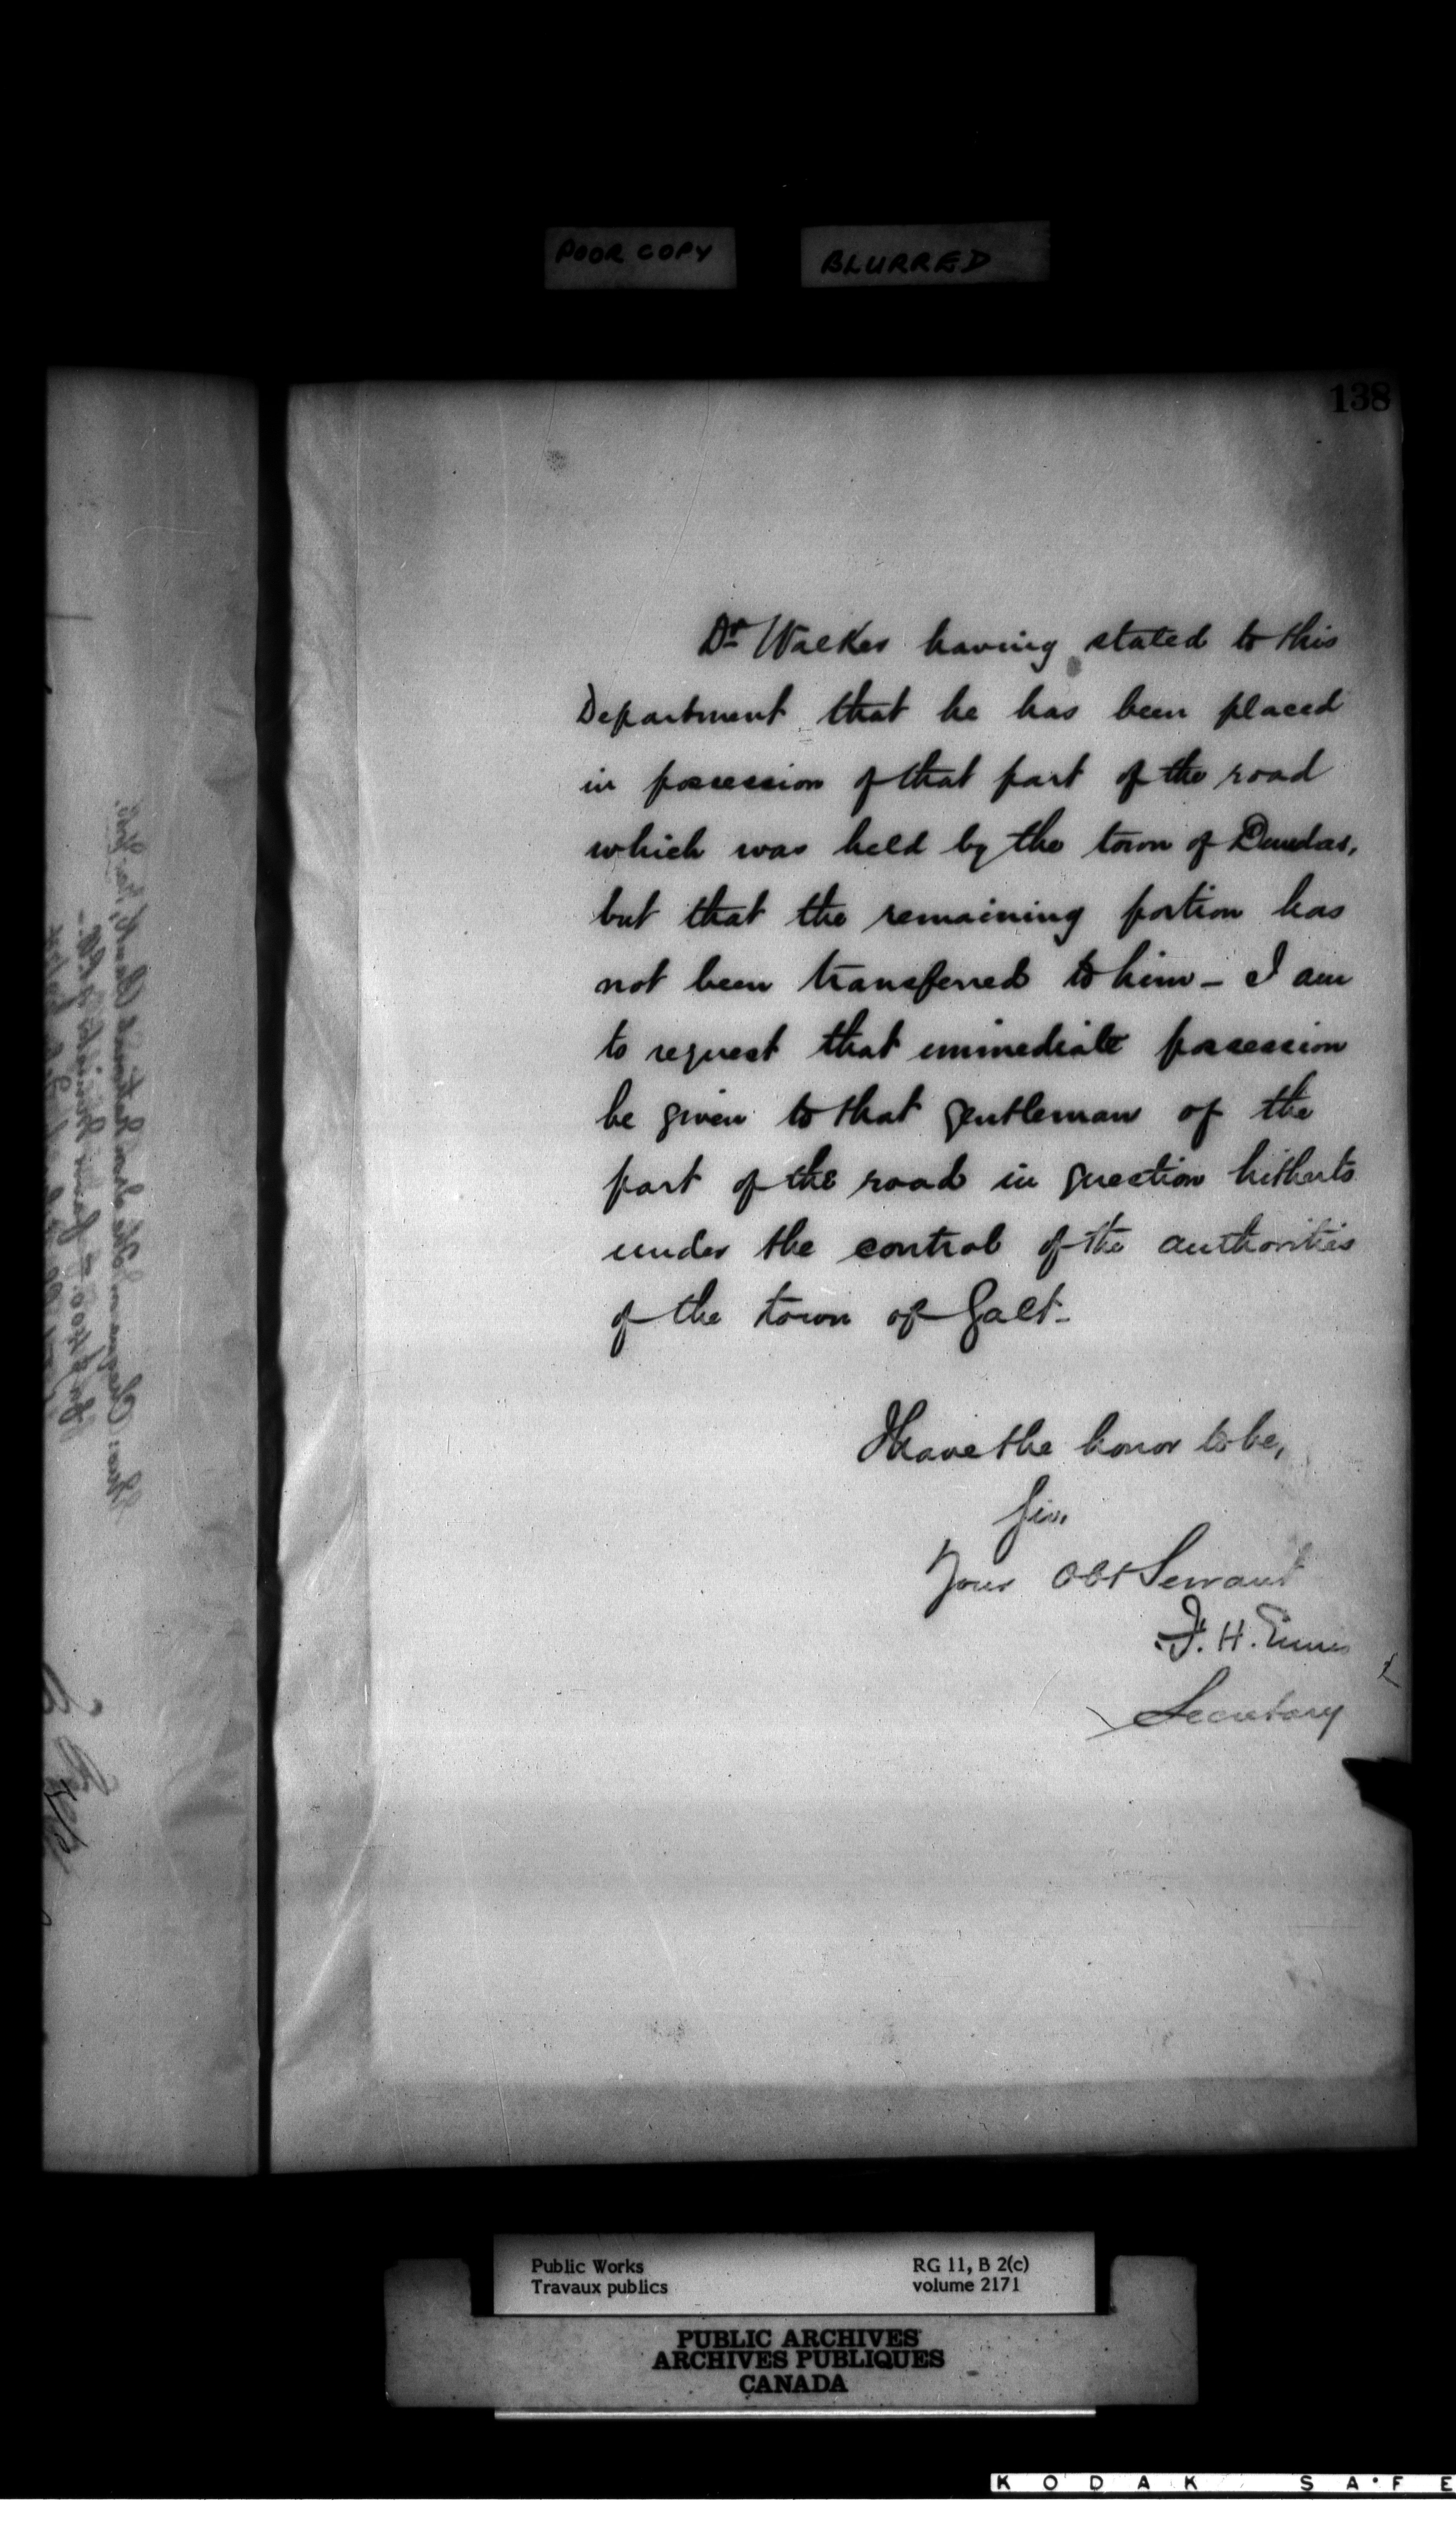 POOR COPY
BLURRED
138
Dr Walker having stated to this
Department that he has been placed
in possession of that part of the road
which was held by the town of Dundas,
but that the remaining portion has
not been transferred to him - I am
to request that immediate possession
be given to that gentleman of the
part of the road in question hitherto
under the control of the authorities
of the town of Galt -
I have the honor to be,
Sir,
Your Obt Servant
F. H. Ennis
Secretary
Public Works
Travaux publics
RG 11, B 2(c)
volume 2171
PUBLIC ARCHIVES
ARCHIVES PUBLIQUES
CANADA
KODAK SAFE